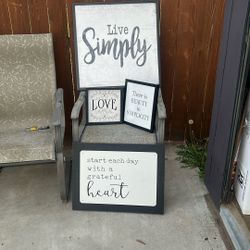 Live
Simply
LOVE
There is
BEAUTY
in
SIMPLICITY
start each day
with a
grateful
heart